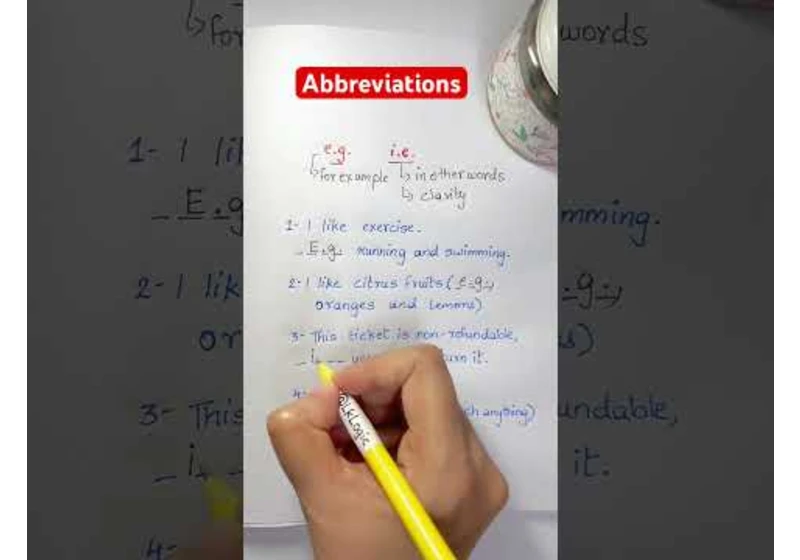 Abbreviations
e.g. i.e.
for example in other words
clarity
1- I like exercise.
E.g. running and swimming.
2- I like citrus fruits (e.g.,
oranges and lemons)
3- This ticket is non-refundable,
i. it.
4-
anything)
@LkLogic